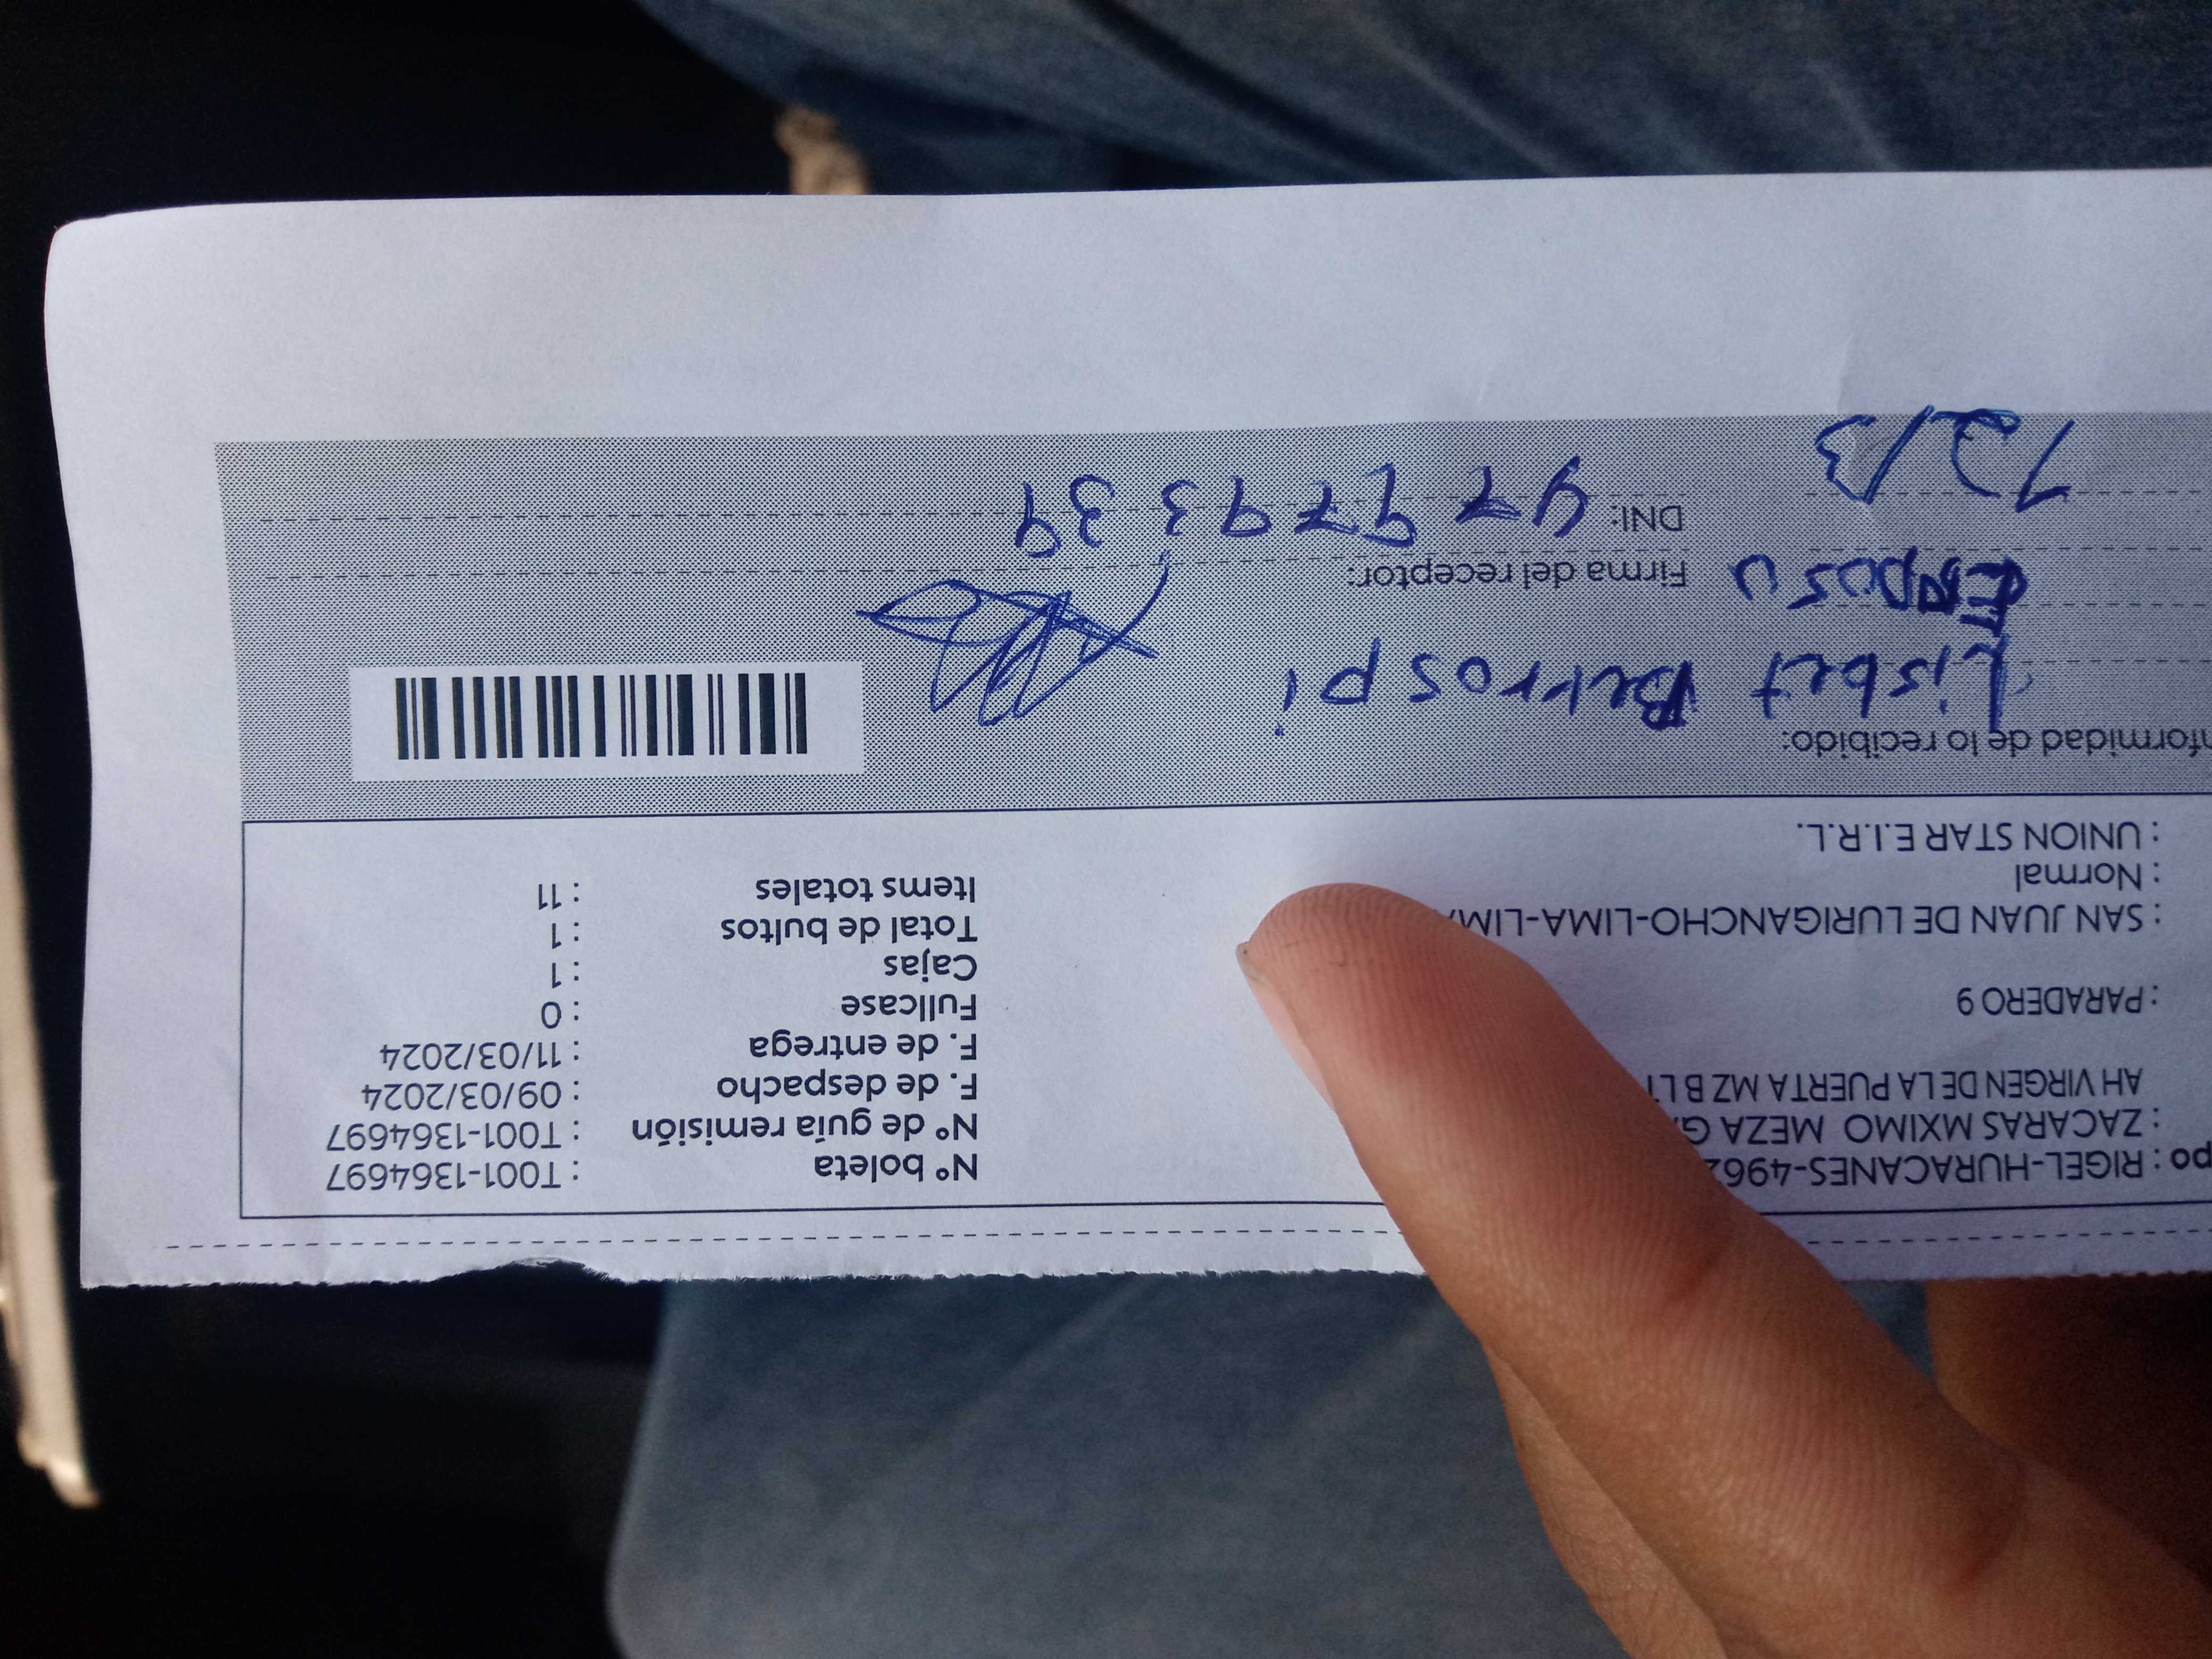 po : RIGEL-HURACANES-4962 N° boleta : T001-1364697
: ZACARAS MXIMO MEZA N° de guía remisión : T001-1364697
AH VIRGEN DE LA PUERTA MZ B F. de despacho : 09/03/2024
F. de entrega : 11/03/2024
: PARADERO 9 Fullcase : 0
Cajas : 1
: SAN JUAN DE LURIGANCHO-LIMA-LIMA Total de bultos : 1
: Normal Items totales : 11
: UNION STAR E.I.R.L.
nformidad de lo recibido:
Lisbet Berrospi
Esposo Firma del receptor:
12/3 DNI: